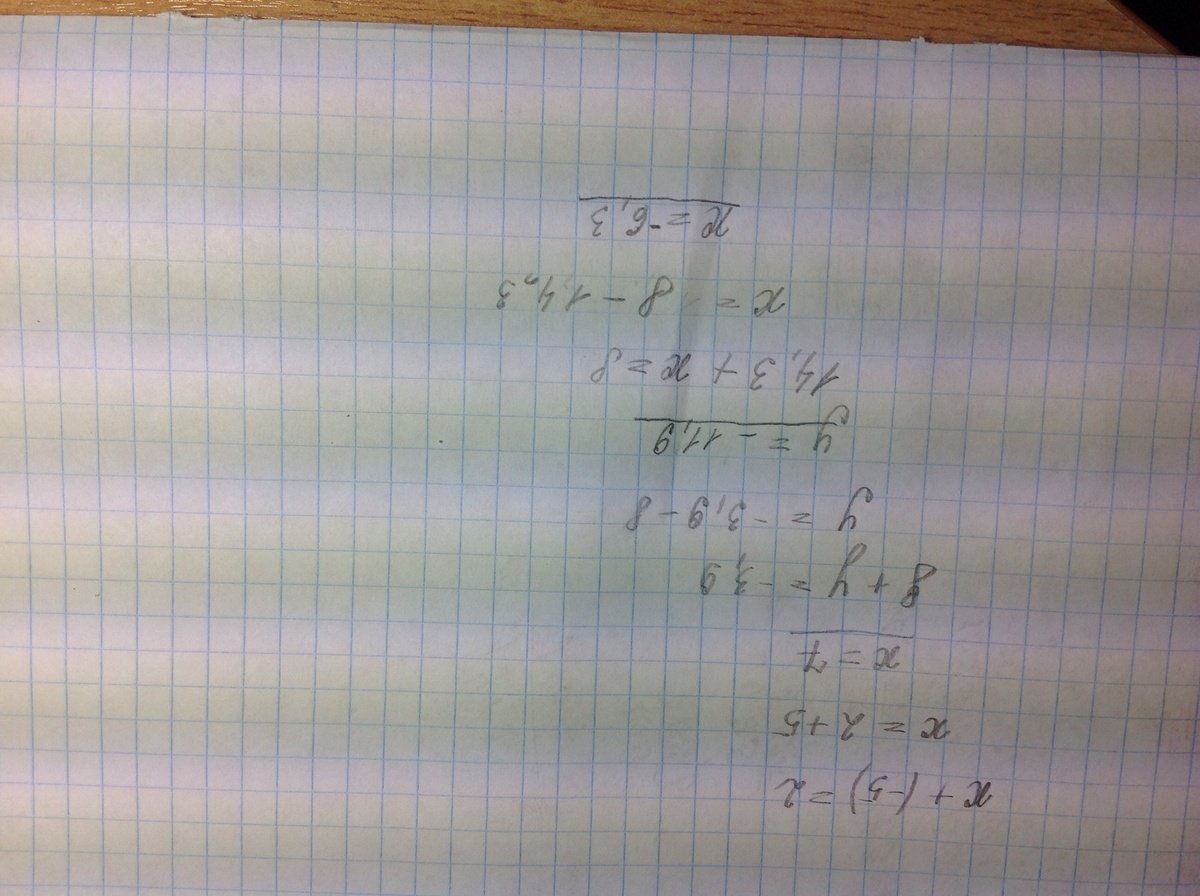 x + (-5) = 2
x = 2 + 5
x = 7
8 + y = -3,9
y = -3,9 - 8
y = -11,9
14,3 + x = 8
x = 8 - 14,3
x = -6,3